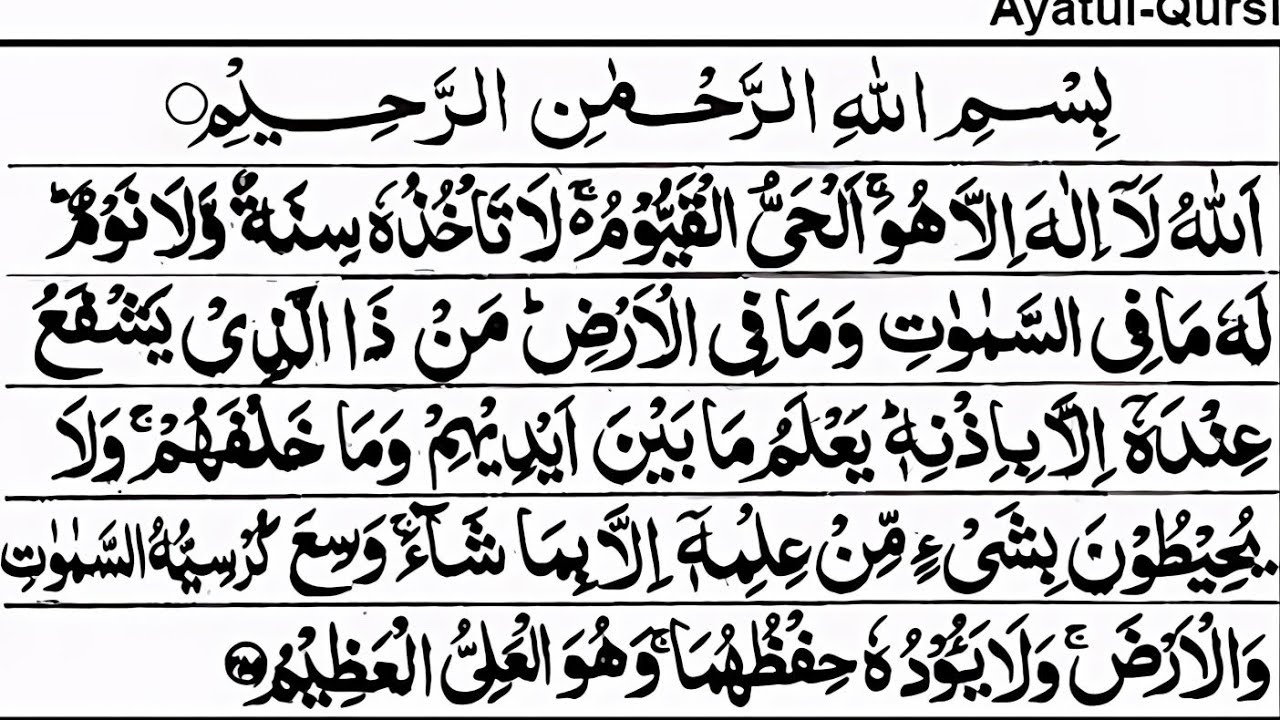 Ayatul-Qursi
بِسْمِ اللّٰهِ الرَّحْمٰنِ الرَّحِيْمِ
اَللّٰهُ لَآ اِلٰهَ اِلَّا هُوَۚ اَلْحَىُّ الْقَيُّوْمُ ەۚ لَا تَاْخُذُهٗ سِنَةٌ وَّلَا نَوْمٌؕ
لَهٗ مَا فِى السَّمٰوٰتِ وَمَا فِى الْاَرْضِؕ مَنْ ذَا الَّذِىْ يَشْفَعُ
عِنْدَهٗٓ اِلَّا بِاِذْنِهٖؕ يَعْلَمُ مَا بَيْنَ اَيْدِيْهِمْ وَمَا خَلْفَهُمْۚ وَلَا
يُحِيْطُوْنَ بِشَىْءٍ مِّنْ عِلْمِهٖٓ اِلَّا بِمَا شَآءَۚ وَسِعَ كُرْسِيُّهُ السَّمٰوٰتِ
وَالْاَرْضَۚ وَلَا يَـُٔوْدُهٗ حِفْظُهُمَاۚ وَهُوَ الْعَلِىُّ الْعَظِيْمُ